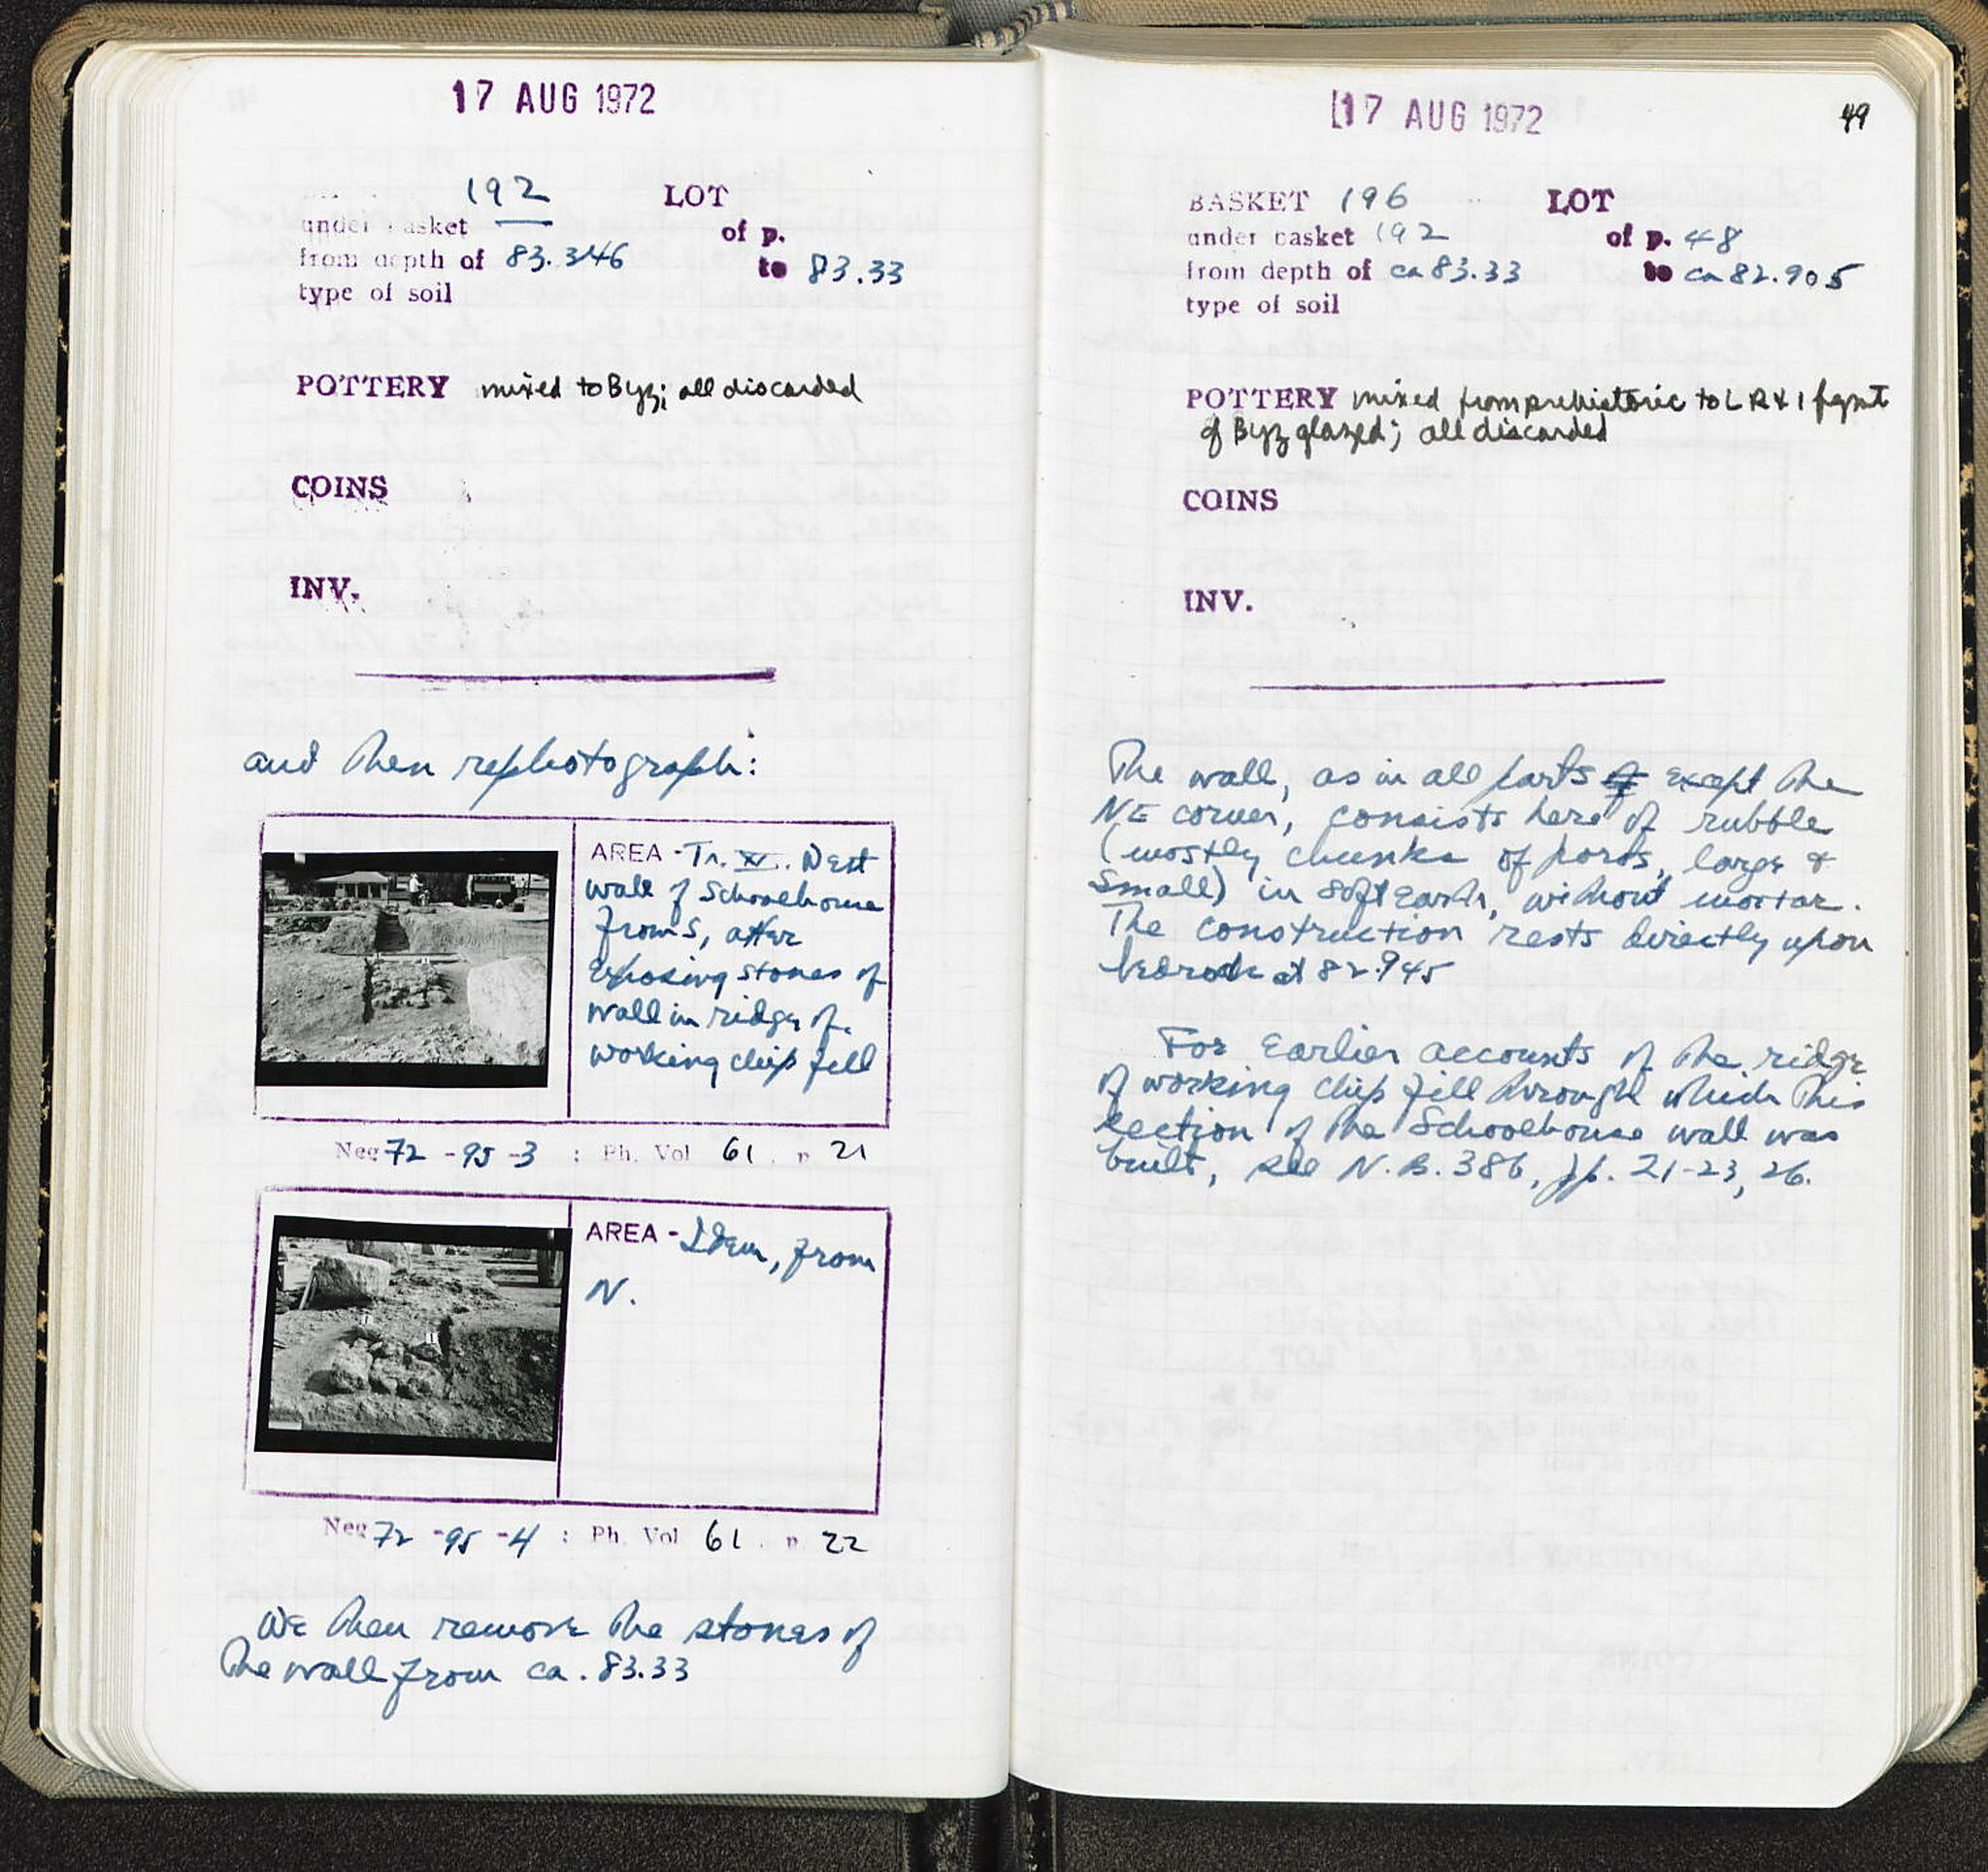 17 AUG 1972
192 LOT
under basket of p.
from depth of 83.346 to 83.33
type of soil
POTTERY mixed to Byz; all discarded
COINS
INV.
and then rephotograph:
AREA - Tr. XV. West
wall of Schoolhouse
from S, after
exposing stones of
wall in ridge of
working chip fill
Neg 72 - 95 - 3 : Ph. Vol 61 . p 21
AREA - Idem, from
N.
Neg 72 - 95 - 4 : Ph. Vol 61 . p 22
We then remove the stones of
the wall from ca. 83.33
17 AUG 1972
49
BASKET 196 LOT
under basket 192 of p. 48
from depth of ca 83.33 to ca 82.905
type of soil
POTTERY mixed from prehistoric to LR & 1 fgmt
of Byz glazed; all discarded
COINS
INV.
The wall, as in all parts except the
NE corner, consists here of rubble
(mostly chunks of poros, large &
small) in soft earth, without mortar.
The construction rests directly upon
bedrock at 82.945
For earlier accounts of the ridge
of working chip fill through which this
section of the Schoolhouse wall was
built, see N.B. 386, pp. 21-23, 26.